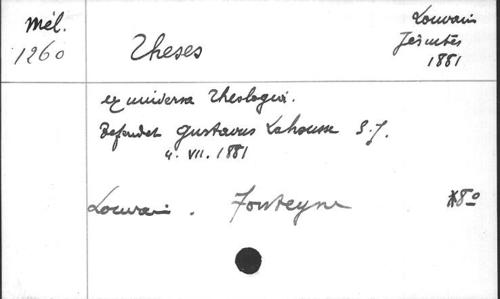 Mél.
1260
Louvain
Jésuites
1881
Theses
ex universa Theologia.
Defendet Gustavus Lahousse S.J.
4. VII. 1881
Louvain. Fonteyne
8º